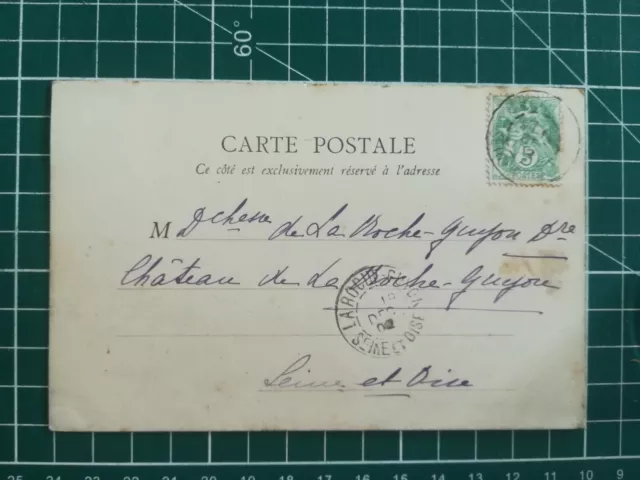 60°
5
CARTE POSTALE
Ce côté est exclusivement réservé à l'adresse
M Dchesse de La Roche-Guyon Dre
Château de La Roche-Guyon
LA ROCHE-GUYON
DEC
SEINE ET OISE
Seine et Oise
25 24 23 22 21 20 19 18 17 16 15 14 13 12 11 10 9